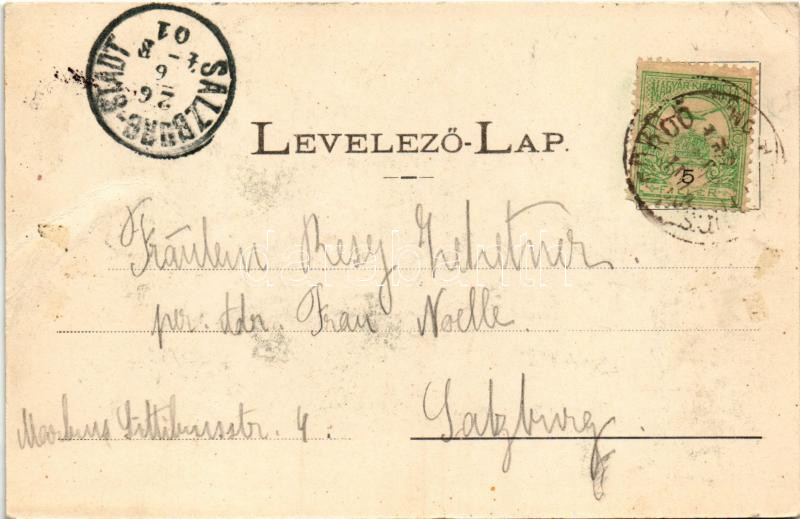 SALZBURG-STADT
26 6
01
MAGYAR KIR. POSTA
5
FILLÉR
LEVELEZŐ-LAP.
Fräulein Resy Zehetner.
per. Adr. Frau Noelle.
Markus Sittikusstr. 4.
Salzburg.
darabanth